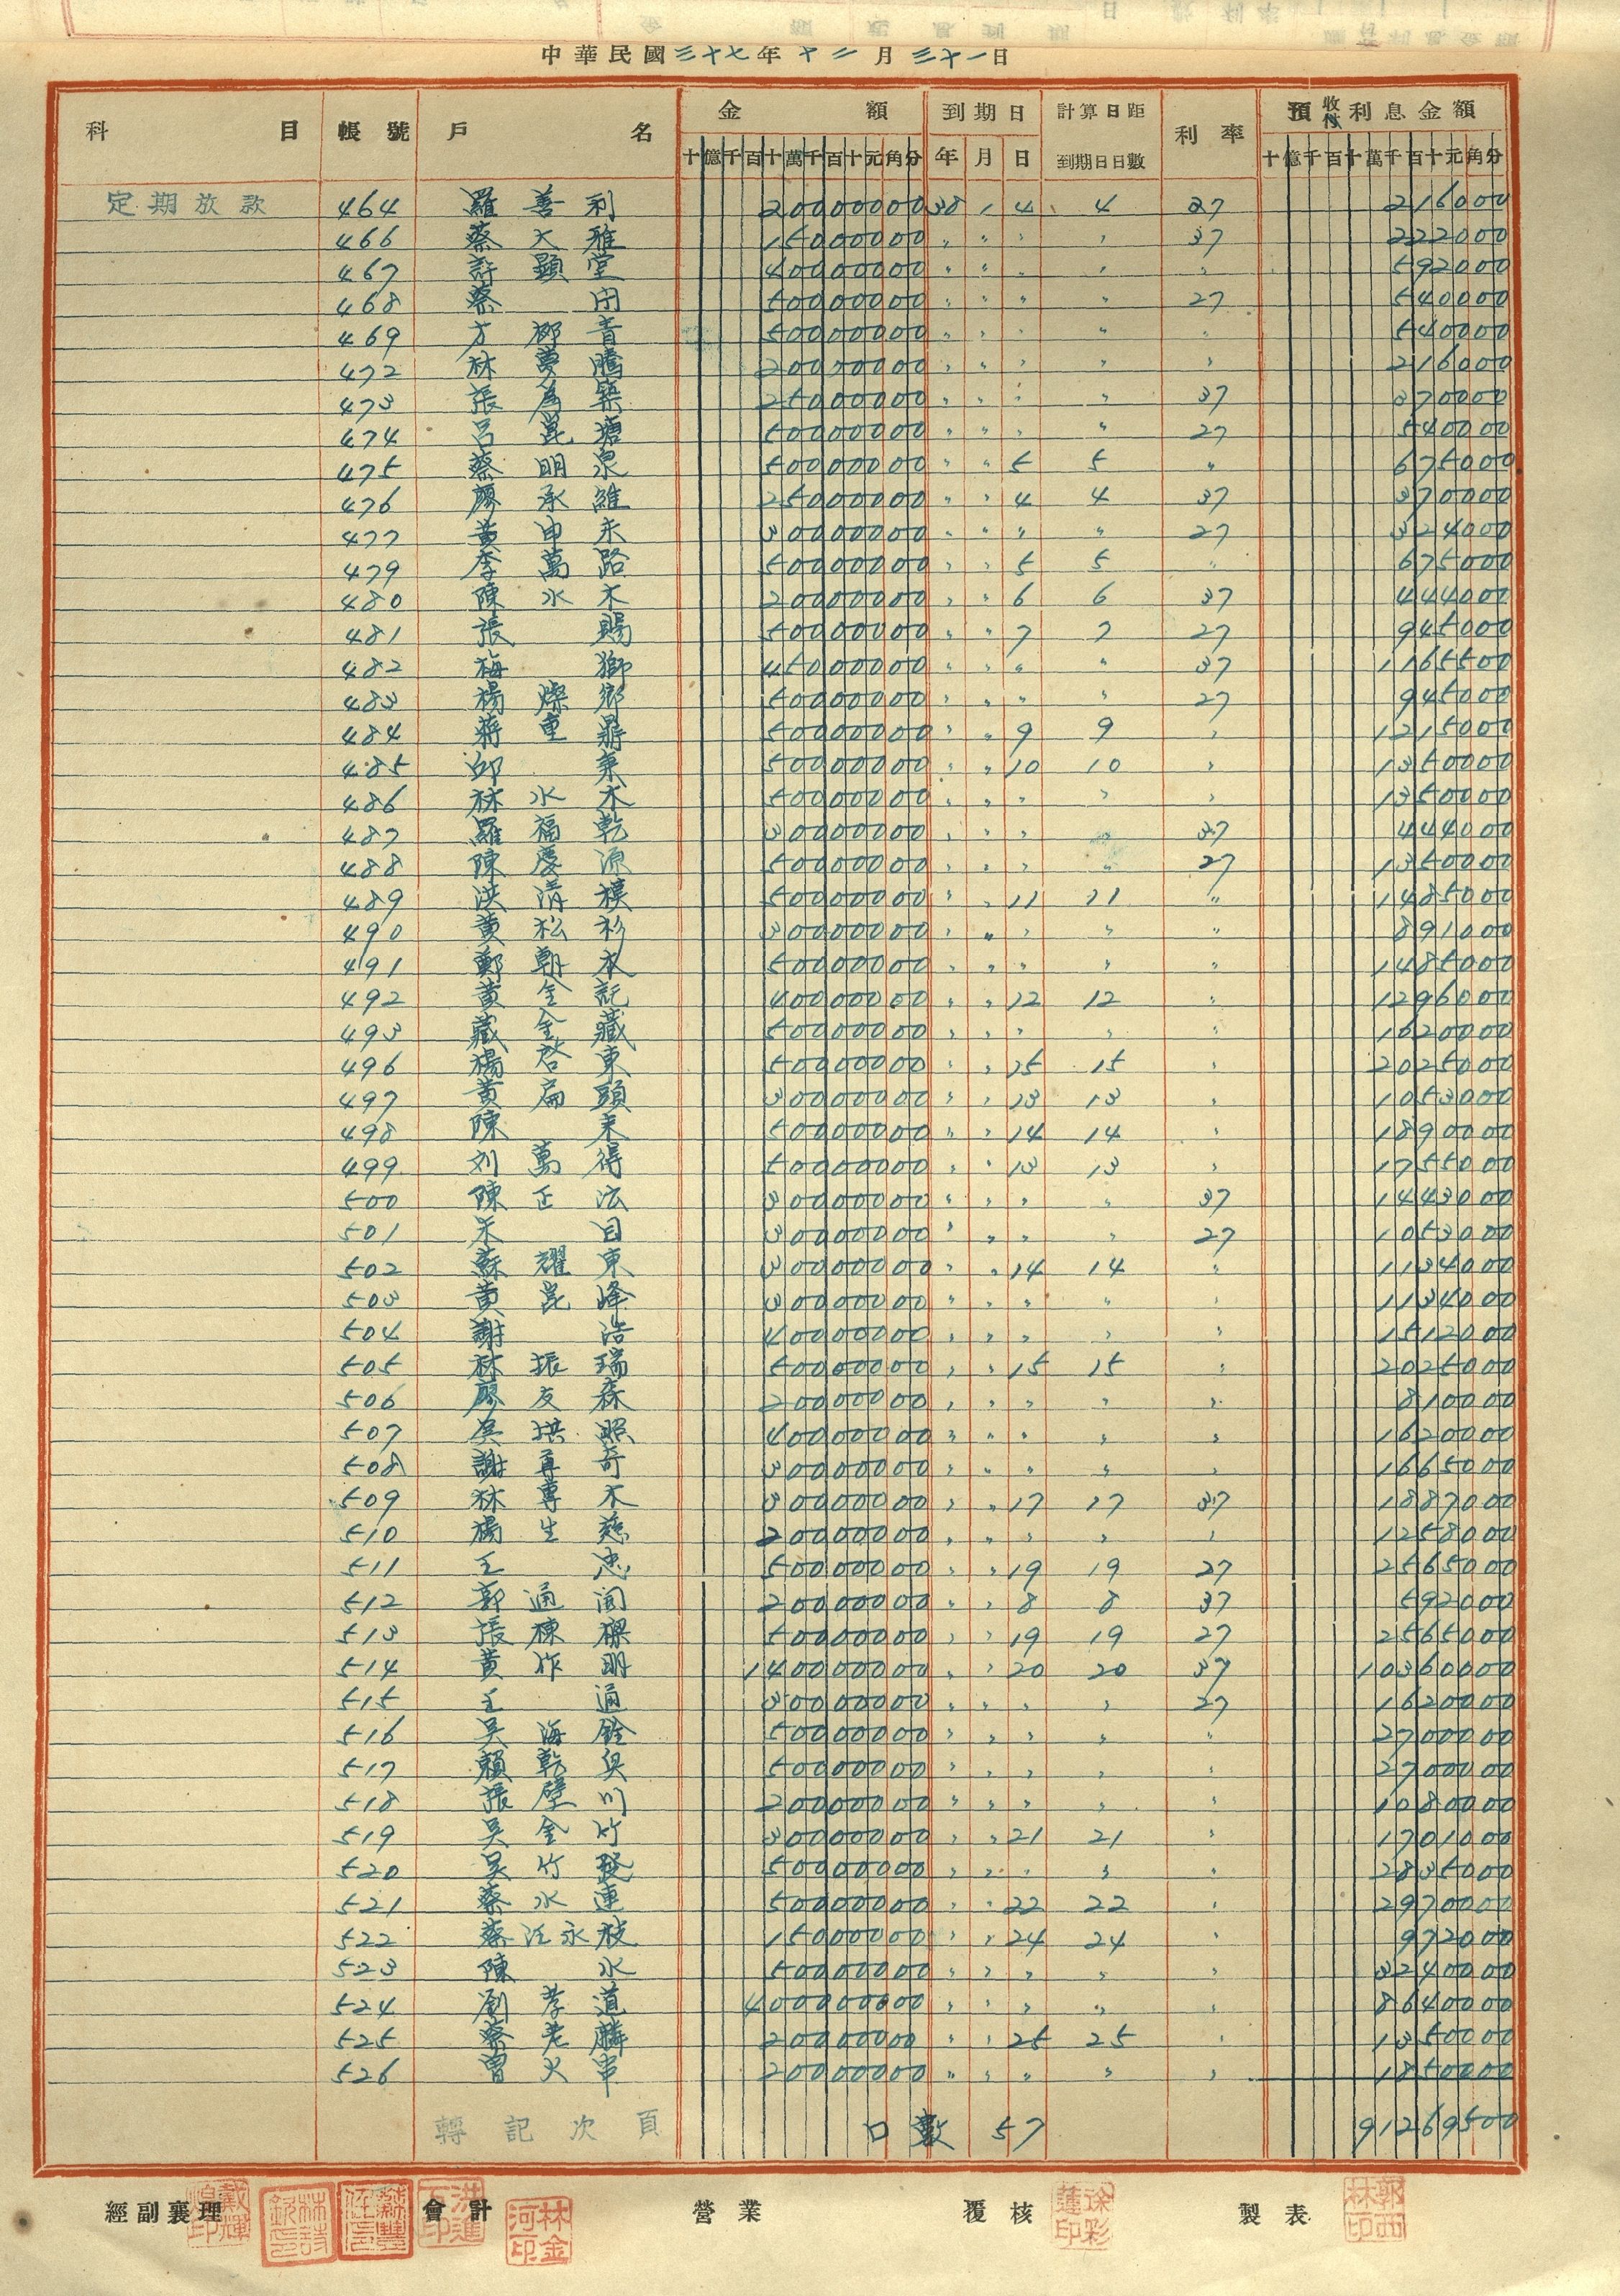 中華民國三十七年十二月三十一日
科目 帳號 戶名 金額 到期日 計算日距到期日日數 利率 預收付利息金額
十億千百十萬千百十元角分 年 月 日 十億千百十萬千百十元角分
定期放款 464 羅善利 20000000 38 1 4 4 27 216000
466 蔡大雅 15000000 〃 〃 〃 〃 37 222000
467 許顯堂 40000000 〃 〃 〃 〃 〃 592000
468 蔡 50000000 〃 〃 〃 〃 27 540000
469 方鄉音 50000000 〃 〃 〃 〃 〃 540000
472 林夢騰 20000000 〃 〃 〃 〃 〃 216000
473 張為築 25000000 〃 〃 〃 〃 37 370000
474 呂崑塘 50000000 〃 〃 〃 〃 27 540000
475 蔡明泉 50000000 〃 〃 5 5 〃 675000
476 廖承維 25000000 〃 〃 4 4 37 370000
477 黃申未 30000000 〃 〃 〃 〃 27 324000
479 李萬路 50000000 〃 〃 5 5 〃 675000
480 陳水木 20000000 〃 〃 6 6 37 444000
481 張賜 50000000 〃 〃 7 7 27 945000
482 梅獅 45000000 〃 〃 〃 〃 37 1165500
483 楊燦鄉 50000000 〃 〃 〃 〃 27 945000
484 蔣重鼎 50000000 〃 〃 9 9 〃 1215000
485 邱東 50000000 〃 〃 10 10 〃 1350000
486 林水木 50000000 〃 〃 〃 〃 〃 1350000
487 羅福乾 30000000 〃 〃 〃 〃 37 444000
488 陳慶源 50000000 〃 〃 〃 〃 27 1350000
489 洪清模 50000000 〃 〃 11 11 〃 1485000
490 黃松杉 30000000 〃 〃 〃 〃 〃 891000
491 鄭朝本 50000000 〃 〃 〃 〃 〃 1485000
492 黃金記 40000000 〃 〃 12 12 〃 1296000
493 藏金藏 50000000 〃 〃 〃 〃 〃 1620000
496 楊啓東 50000000 〃 〃 15 15 〃 2025000
497 黃扁頭 30000000 〃 〃 13 13 〃 1053000
498 陳未 50000000 〃 〃 14 14 〃 1890000
499 刘萬得 50000000 〃 〃 13 13 〃 1755000
500 陳正法 30000000 〃 〃 〃 〃 37 1443000
501 朱目 30000000 〃 〃 〃 〃 27 1053000
502 蘇耀東 30000000 〃 〃 14 14 〃 1134000
503 黃崑峰 30000000 〃 〃 〃 〃 〃 1134000
504 謝浩 40000000 〃 〃 〃 〃 〃 1512000
505 林振瑞 50000000 〃 〃 15 15 〃 2025000
506 廖友森 20000000 〃 〃 〃 〃 〃 810000
507 吳拱照 40000000 〃 〃 〃 〃 〃 1620000
508 謝再奇 30000000 〃 〃 〃 〃 〃 1665000
509 林專木 30000000 〃 〃 17 17 37 1887000
510 楊生慈 20000000 〃 〃 〃 〃 〃 1258000
511 王忠 50000000 〃 〃 19 19 27 2565000
512 郭通闻 20000000 〃 〃 8 8 37 592000
513 張棟樑 50000000 〃 〃 19 19 27 2565000
514 黃作明 140000000 〃 〃 20 20 37 10360000
515 王通 30000000 〃 〃 〃 〃 27 1620000
516 吳海銓 50000000 〃 〃 〃 〃 〃 2700000
517 賴乾與 50000000 〃 〃 〃 〃 〃 2700000
518 張壁川 20000000 〃 〃 〃 〃 〃 1080000
519 吳金竹 30000000 〃 〃 21 21 〃 1701000
520 吴竹發 50000000 〃 〃 〃 〃 〃 2835000
521 蔡水連 50000000 〃 〃 22 22 〃 2970000
522 蔡江永枝 15000000 〃 〃 24 24 〃 972000
523 陳水 50000000 〃 〃 〃 〃 〃 3240000
524 劉孝道 400000000 〃 〃 〃 〃 〃 8640000
525 蔡老麟 20000000 〃 〃 25 25 〃 1350000
526 曾火串 20000000 〃 〃 〃 〃 〃 1850000
轉記次頁 口數 57 91269500
經副襄理 會計 營業 覆核 製表